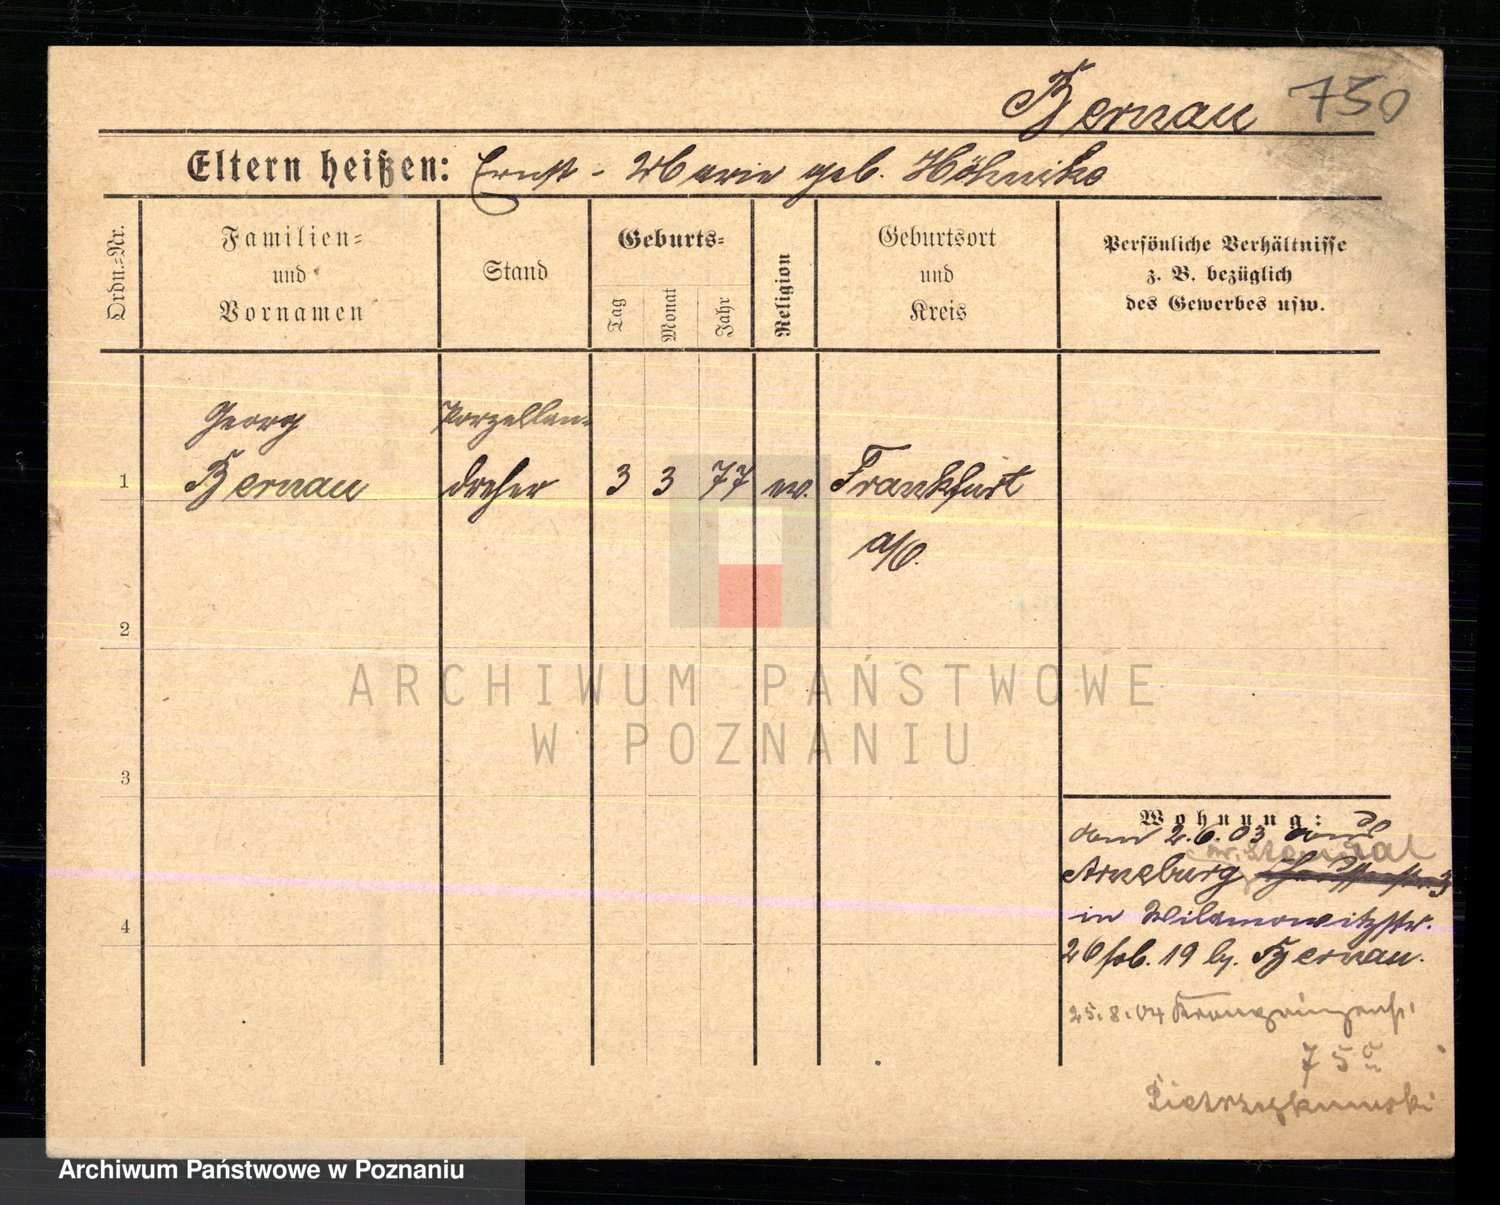 Bernau 750
Eltern heißen: Ernst - Marie geb. Höhnike
Ordn.-Nr.
Familien-
und
Vornamen
Stand
Geburts-
Tag
Monat
Jahr
Religion
Geburtsort
und
Kreis
Persönliche Verhältnisse
z. B. bezüglich
des Gewerbes usw.
Georg Porzellan-
1 Bernau dreher 3 3 77 ev. Frankfurt
a/O.
2
ARCHIWUM PAŃSTWOWE
W POZNANIU
3
Wohnung:
am 2.6.03 aus
Kr. Stendal
Arneburg
in Wilamowitzstr.
20 feb. 19 b. Bernau.
25.8.04 Kronprinzenst.
4
75
Pietrzykowski
Archiwum Państwowe w Poznaniu